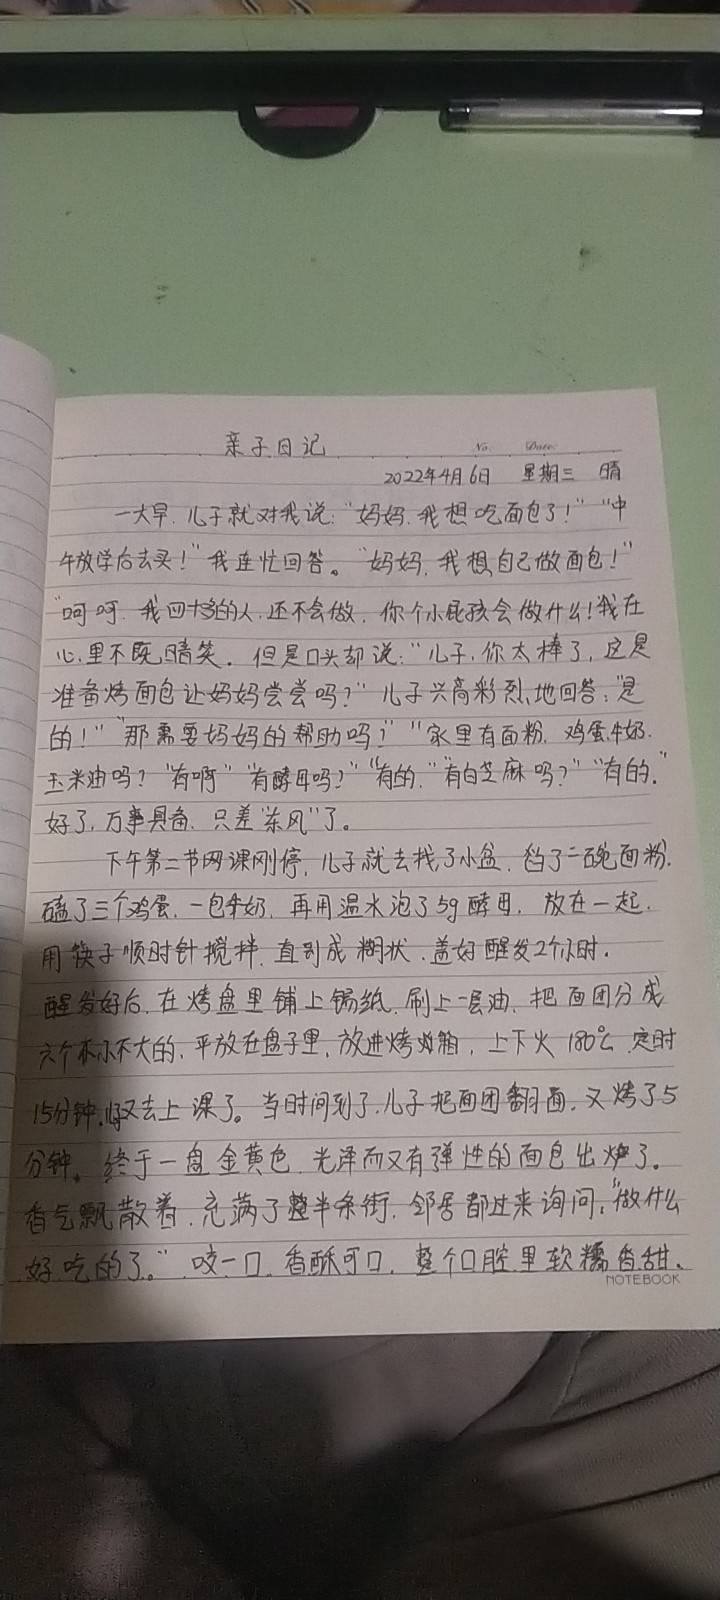 亲子日记
No. Date.
2022年4月6日 星期三 晴
一大早,儿子就对我说:“妈妈,我想吃面包了!”“中
午放学后去买!”我连忙回答。“妈妈,我想自己做面包!”
“呵呵,我四十多的人,还不会做,你个小屁孩会做什么!我在
心里不既暗笑。但是口头却说:“儿子,你太棒了,这是
准备烤面包让妈妈尝尝吗?”儿子兴高彩烈地回答:“是
的!”“那需要妈妈的帮助吗?”“家里有面粉,鸡蛋,牛奶,
玉米油吗?“有啊”“有酵母吗?”“有的,”“有白芝麻吗?”“有的,”
好了,万事具备,只差“东风”了。
下午第二节网课刚停,儿子就去找了小盆,舀了二碗面粉,
磕了三个鸡蛋,一包牛奶,再用温水泡了5g酵母,放在一起,
用筷子顺时针搅拌,直到成糊状,盖好醒发2个小时.
醒发好后,在烤盘里铺上锡纸,刷上一层油,把面团分成
六个不小不大的,平放在盘子里,放进烤箱,上下火180℃,定时
15分钟,又去上课了。当时间到了,儿子把面团翻面,又烤了5
分钟。终于一盘金黄色,光泽而又有弹性的面包出炉了。
香气飘散着,充满了整半条街,邻居都过来询问,“做什么
好吃的了。”咬一口,香酥可口,整个口腔里软糯香甜、
NOTEBOOK